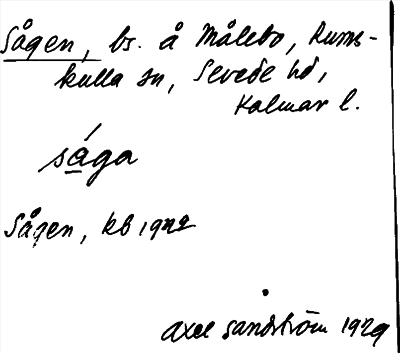 Sågen, bs. å Målebo, Rums-
kulla sn, Sevede hd,
Kalmar l.
sága
Sågen, kb 1942
Axel Sandström 1929